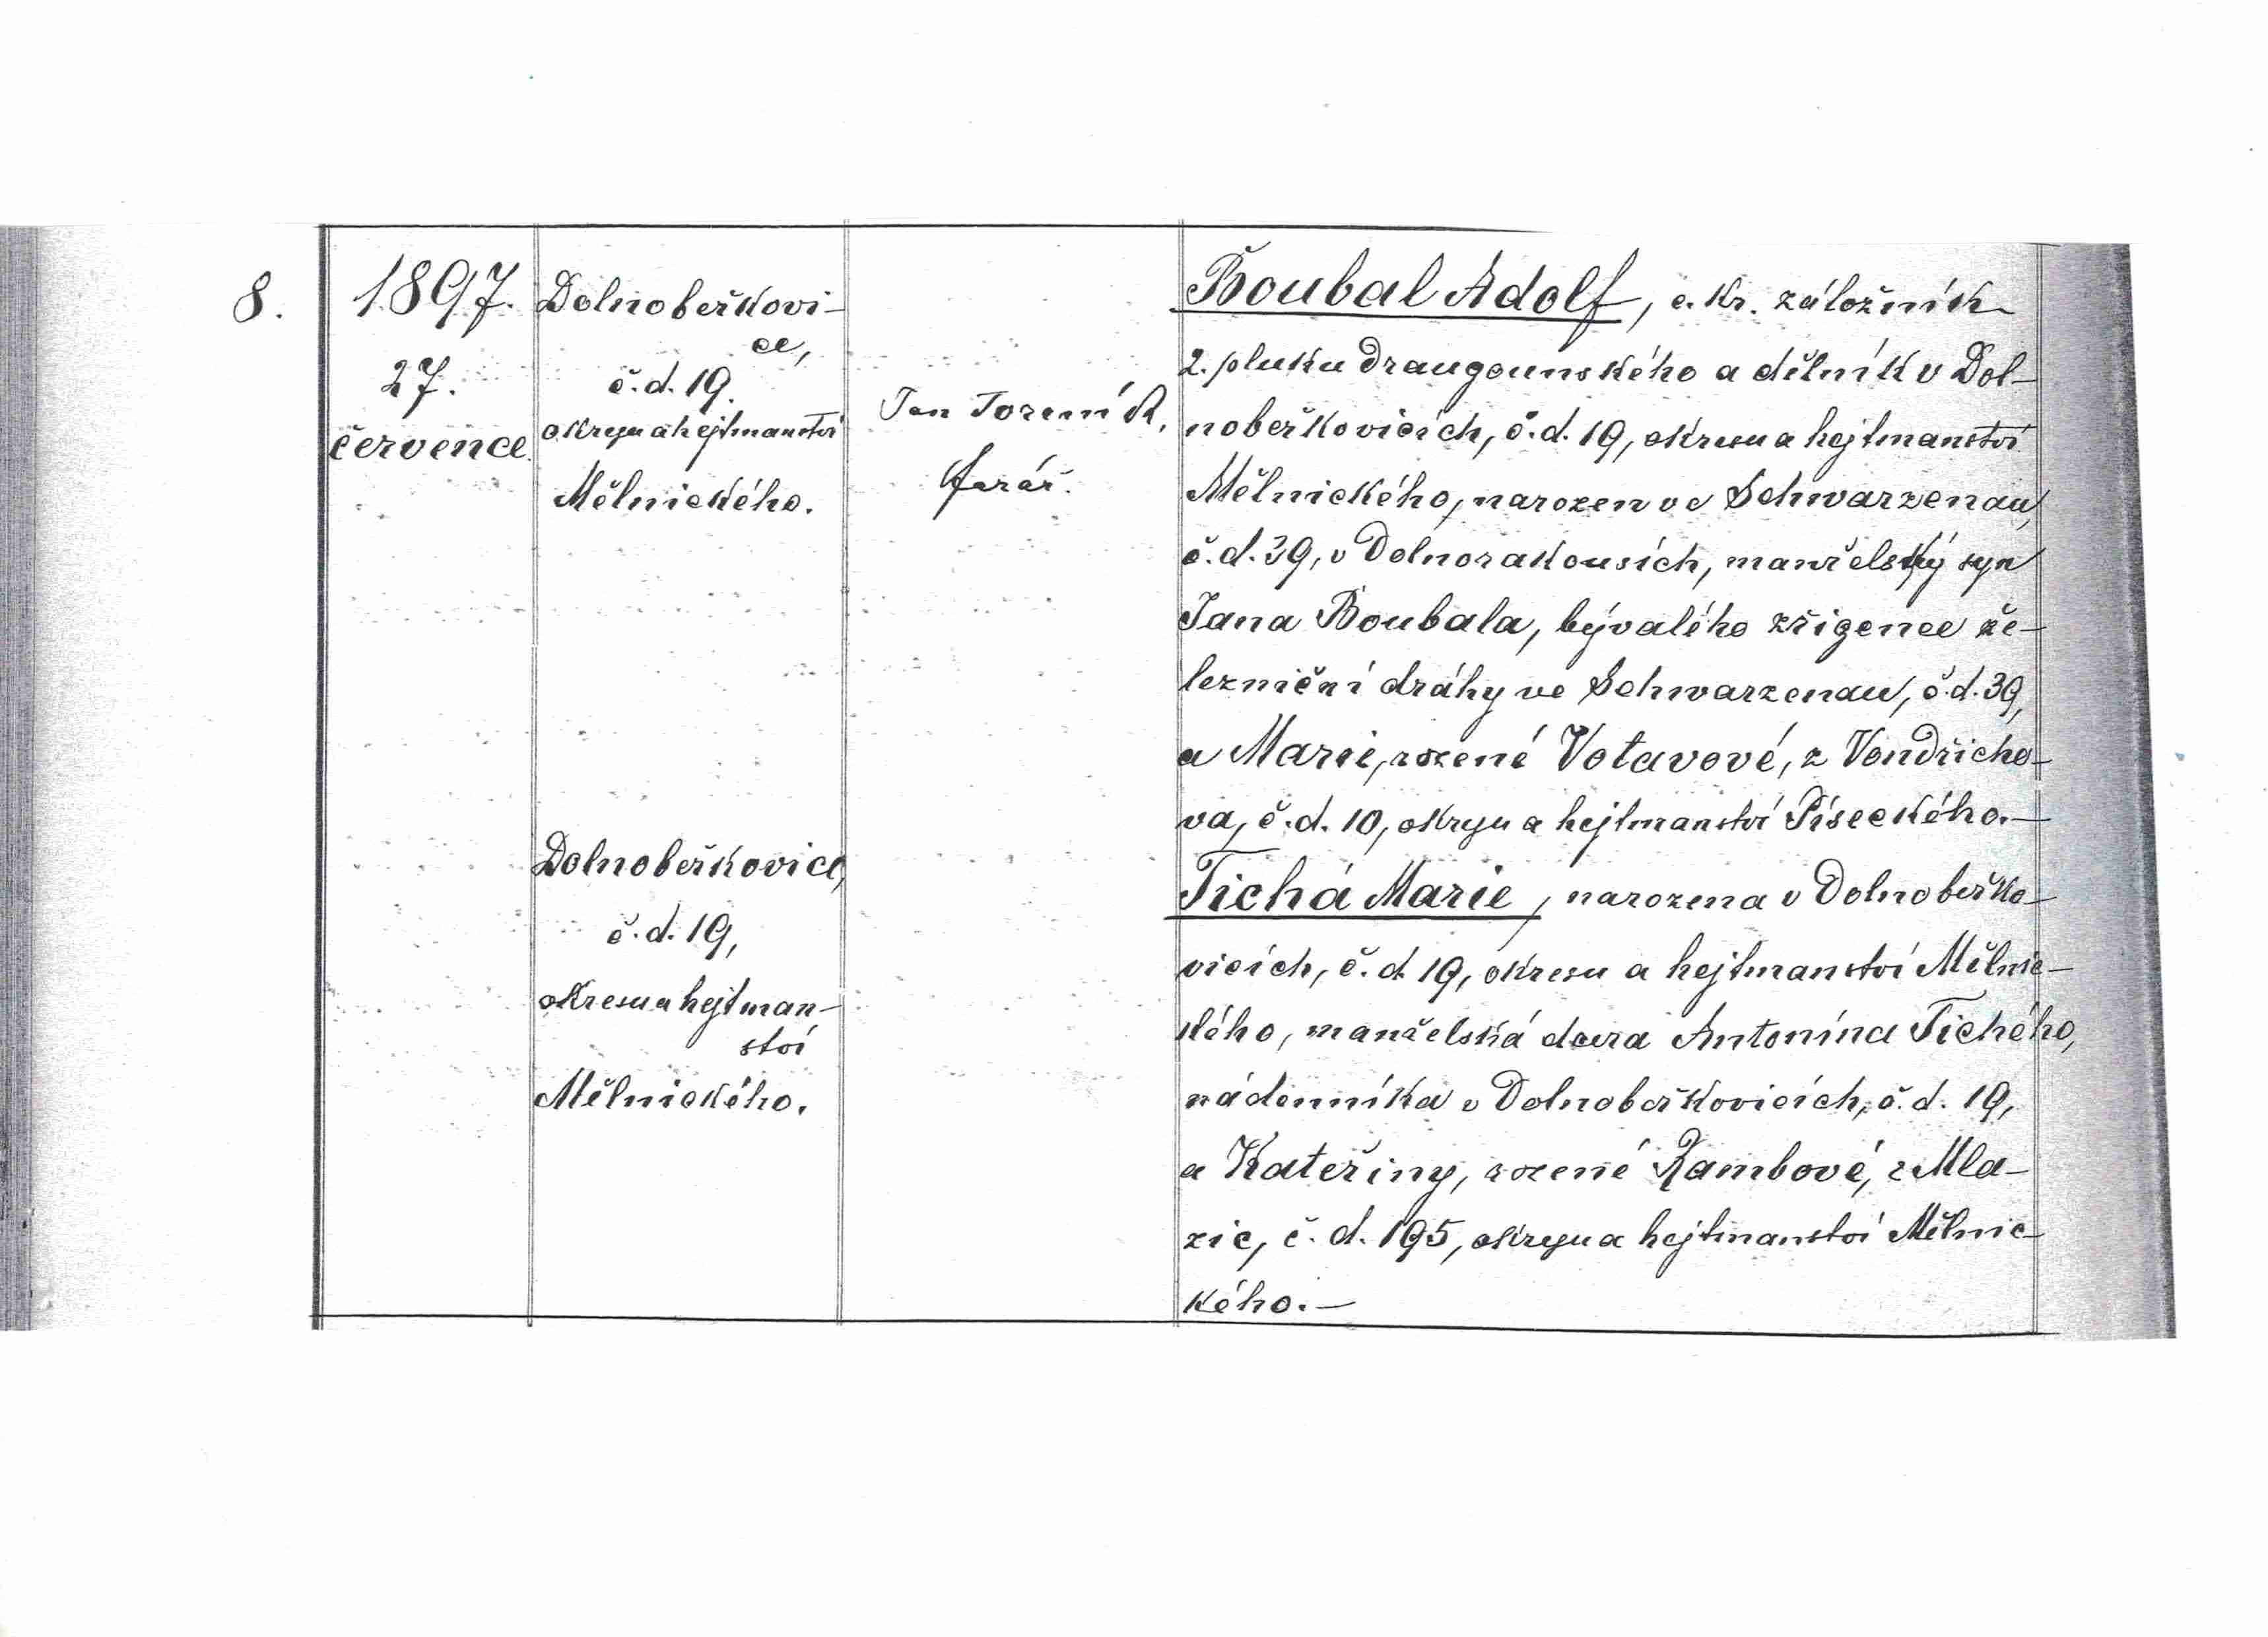 8.
1897.
27.
července.
Dolnobeřkovi-
ce,
č.d. 19.
okresu a hejtmanství
Mělnického.
Dolnobeřkovice,
č.d. 19,
okresu a hejtman-
ství
Mělnického.
Jan
farář.
Boubal Adolf, c. kr. záložník
2. pluku draugounského a dělník v Dol-
nobeřkovicích, č.d. 19, okresu a hejtmanství
Mělnického, narozen ve Schwarzenau,
č.d. 39, v Dolnorakousích, manželský syn
Jana Boubala, bývalého zřigence že-
lezniční dráhy ve Schwarzenau, č.d. 39,
a Marie, rozené Votavové, z Vondřicho-
va, č.d. 10, okresu a hejtmanství Píseckého.-
Tichá Marie, narozena v Dolnobeřko-
vicích, č.d. 19, okresu a hejtmanství Mělnic-
kého, manželská dcera Antonína Tichého,
nádenníka v Dolnobeřkovicích, č.d. 19,
a Kateřiny, rozené Rambové, z Mla-
zic, č.d. 195, okresu a hejtmanství Mělnic-
kého.-